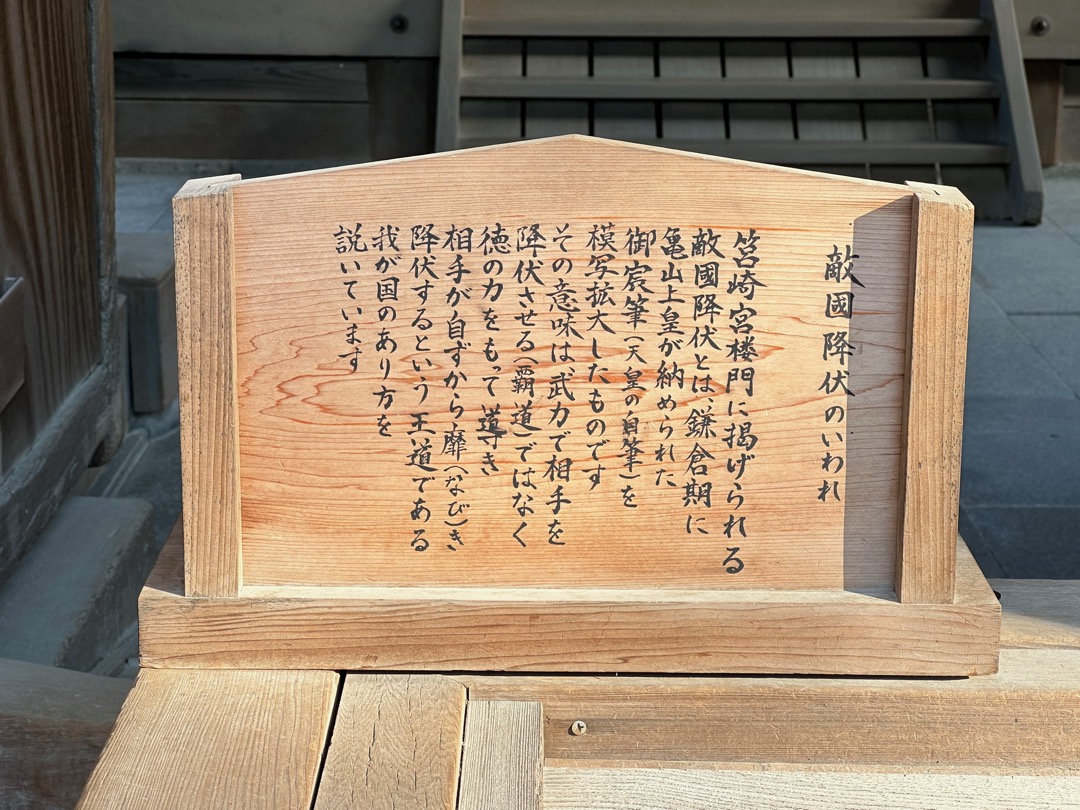 敵國降伏のいわれ
筥崎宮楼門に掲げられる
敵國降伏とは、鎌倉期に
亀山上皇が納められた
御宸筆(天皇の自筆)を
模写拡大したものです
その意味は、武力で相手を
降伏させる(覇道)ではなく
徳の力をもって導き
相手が自ずから靡(なび)き
降伏するという王道である
我が国のあり方を
説いています